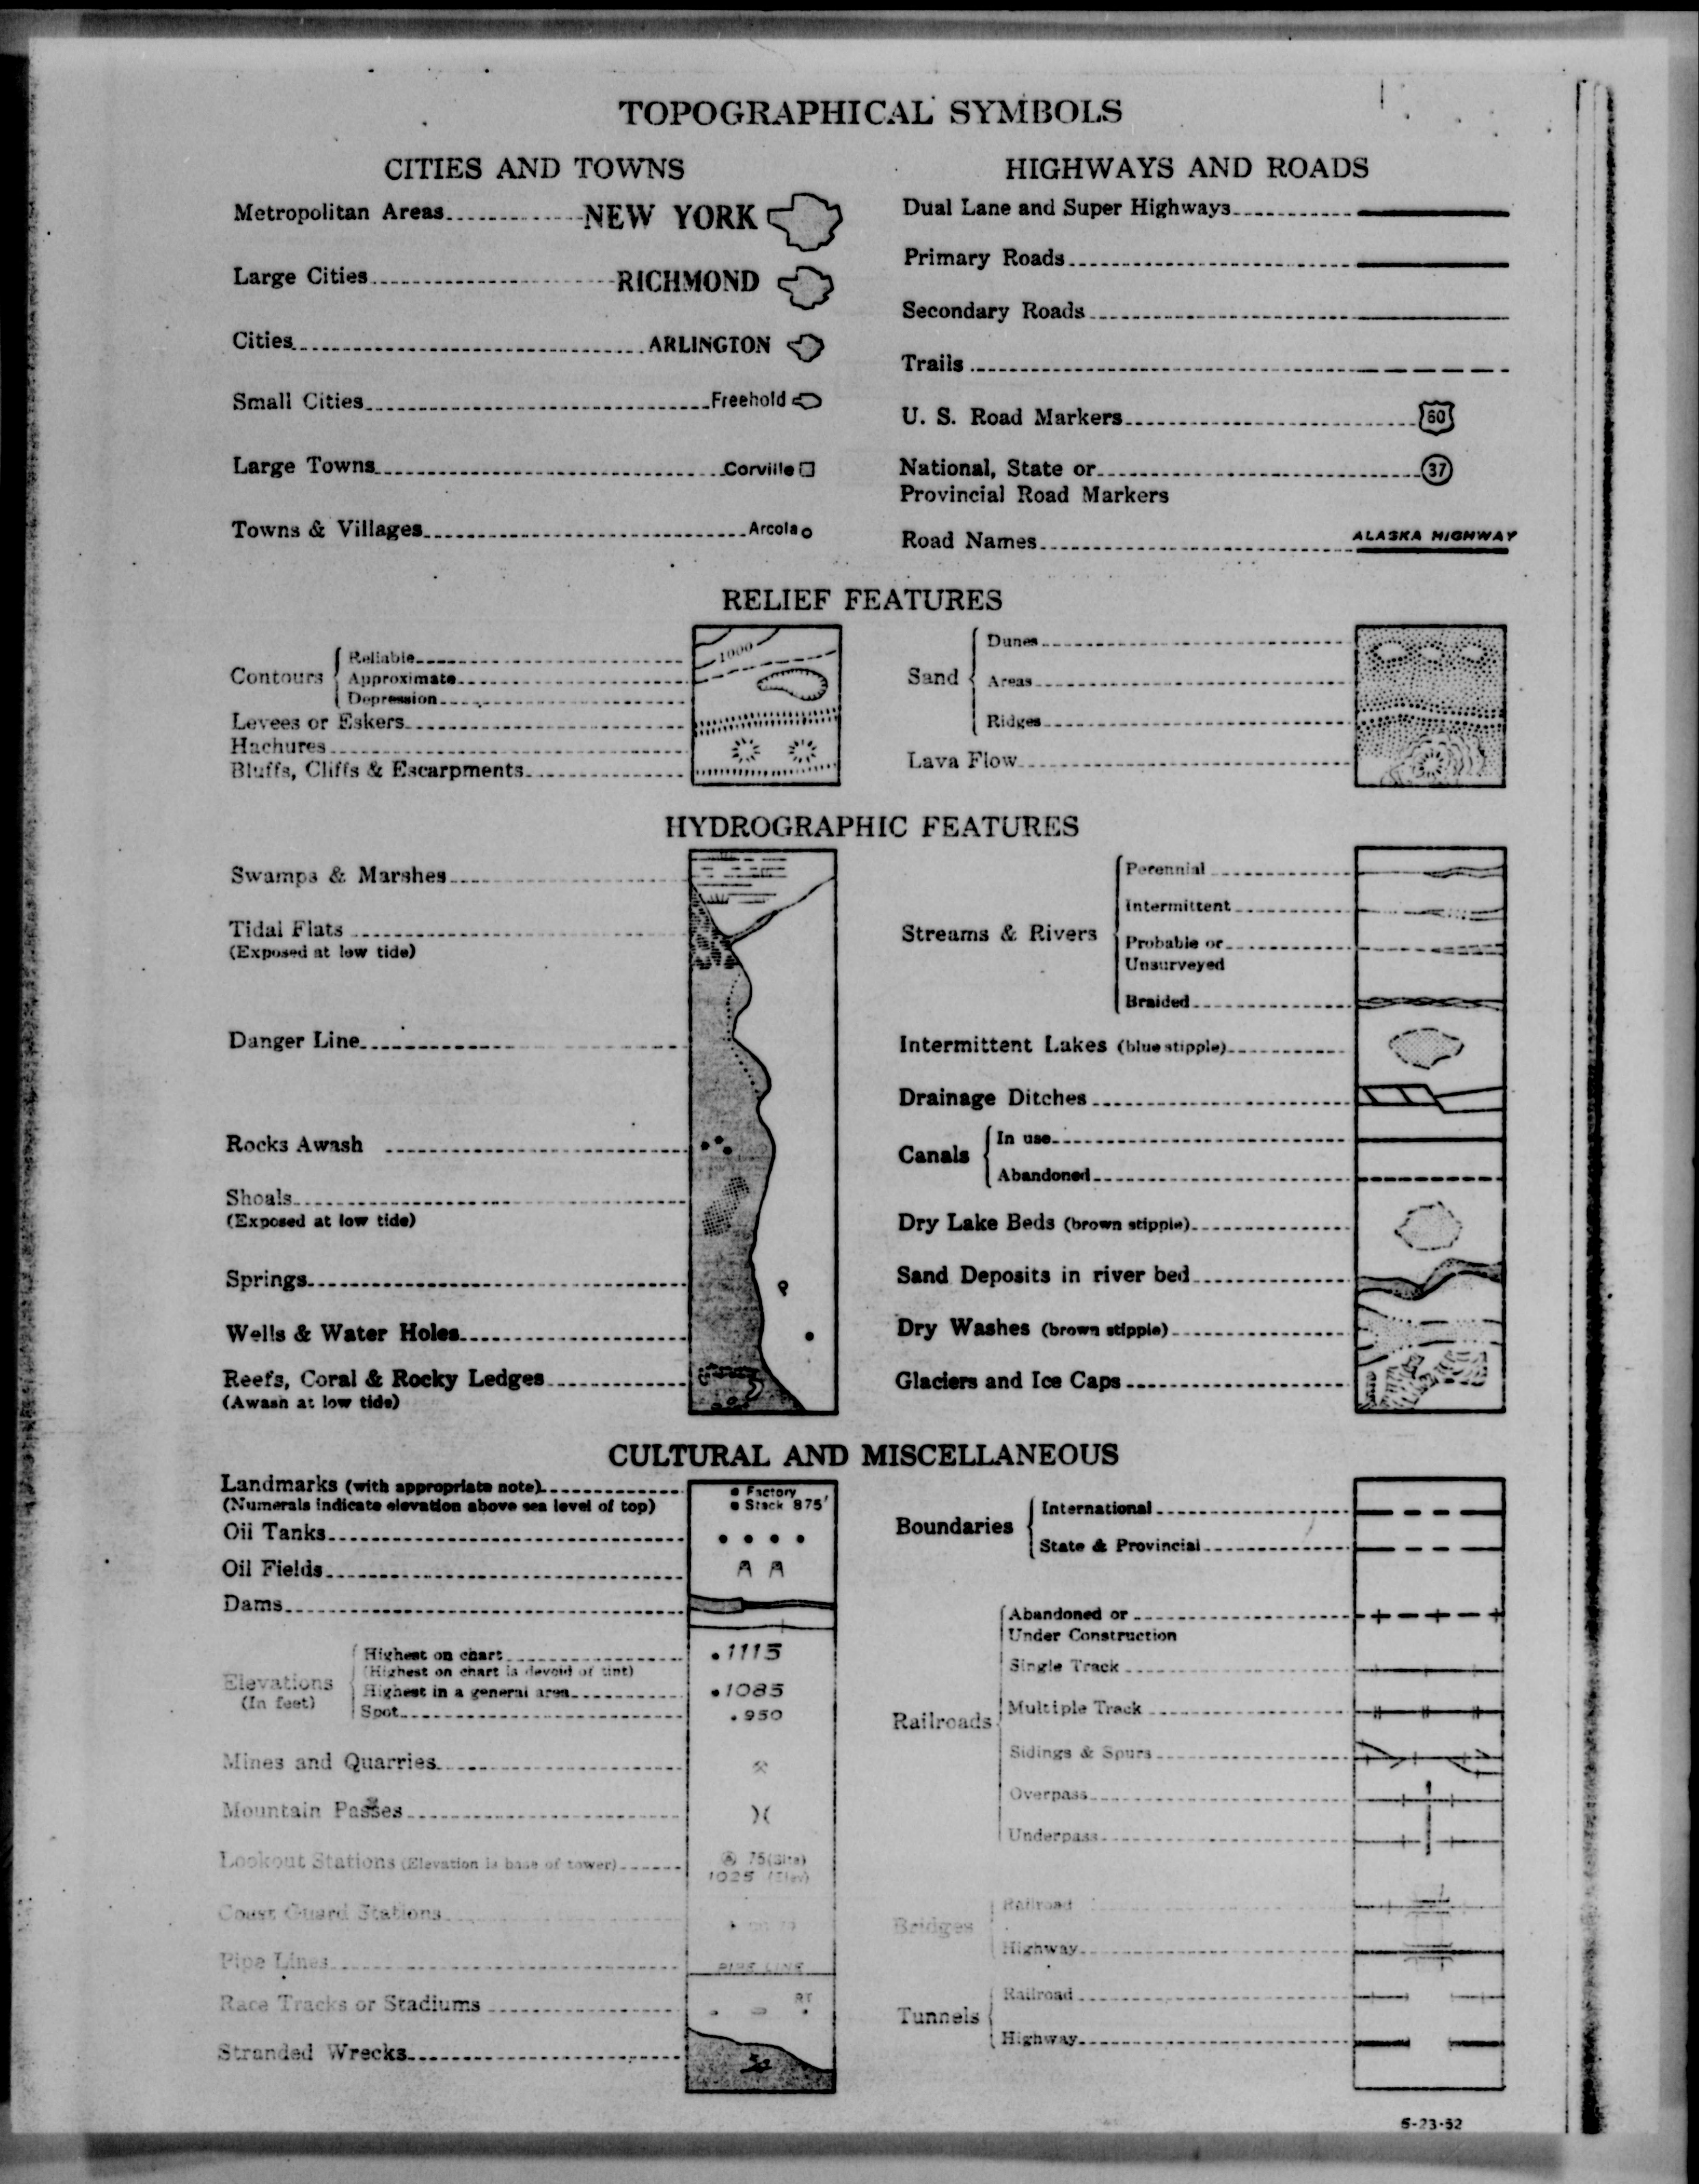 TOPOGRAPHICAL SYMBOLS
CITIES AND TOWNS
Metropolitan Areas NEW YORK
Large Cities RICHMOND
Cities ARLINGTON
Small Cities Freehold
Large Towns Corville
Towns & Villages Arcola
HIGHWAYS AND ROADS
Dual Lane and Super Highways
Primary Roads
Secondary Roads
Trails
U. S. Road Markers 60
National, State or 37
Provincial Road Markers
Road Names ALASKA HIGHWAY
RELIEF FEATURES
Contours
Reliable 1000
Approximate
Depression
Levees or Eskers
Hachures
Bluffs, Cliffs & Escarpments
Sand
Dunes
Areas
Ridges
Lava Flow
HYDROGRAPHIC FEATURES
Swamps & Marshes
Tidal Flats
(Exposed at low tide)
Danger Line
Rocks Awash
Shoals
(Exposed at low tide)
Springs
Wells & Water Holes
Reefs, Coral & Rocky Ledges
(Awash at low tide)
Streams & Rivers
Perennial
Intermittent
Probable or
Unsurveyed
Braided
Intermittent Lakes (blue stipple)
Drainage Ditches
Canals
In use
Abandoned
Dry Lake Beds (brown stipple)
Sand Deposits in river bed
Dry Washes (brown stipple)
Glaciers and Ice Caps
CULTURAL AND MISCELLANEOUS
Landmarks (with appropriate note) Factory
(Numerals indicate elevation above sea level of top) Stack 875'
Oil Tanks
Oil Fields
Dams
Elevations
(In feet)
Highest on chart 1115
(Highest on chart is devoid of tint)
Highest in a general area 1085
Spot 950
Mines and Quarries
Mountain Passes
Lookout Stations (Elevation is base of tower) 75 (Site)
1025 (Elev)
Coast Guard Stations
Pipe Lines PIPE LINE
Race Tracks or Stadiums RT
Stranded Wrecks
Boundaries
International
State & Provincial
Railroads
Abandoned or
Under Construction
Single Track
Multiple Track
Sidings & Spurs
Overpass
Underpass
Bridges
Railroad
Highway
Tunnels
Railroad
Highway
5-23-52